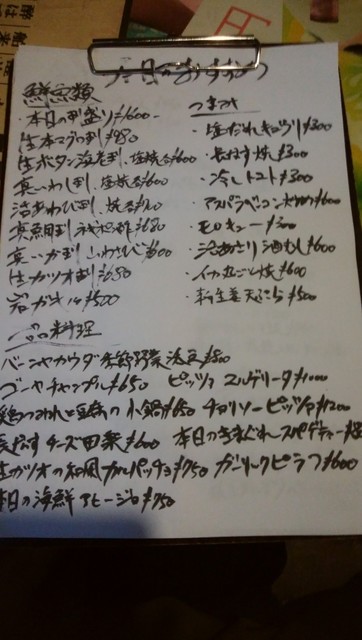 本日のおすすめ
鮮魚類
・本日の刺盛り¥1600-
生本マグロ刺 ¥980
生ボタン海老刺、塩焼 ¥600
真いわし刺、塩焼 ¥600
活あわび刺、焼
真鯛刺
真いか刺 山わさび ¥600
生カツオ刺 ¥680
岩ガキ ¥500
つまみ
・塩だれキュウリ ¥300
・長なす焼 ¥300
・冷しトマト ¥300
・アスパラベーコン ¥600
・モロキュー ¥300
・活あさり酒むし ¥600
・イカ丸ごと焼 ¥600
・新生姜天ぷら ¥500
一品料理
バーニャカウダ 季節野菜 ¥800
ゴーヤチャンプル ¥650 ピッツァ マルゲリータ ¥1000
鶏つみれと豆腐の小鍋 ¥650 チョリソーピッツァ ¥1200
長なすチーズ田楽 ¥600 本日のきまぐれスパゲティー
生カツオの和風カルパッチョ ¥750 ガーリックピラフ ¥600
本日の海鮮アヒージョ ¥750